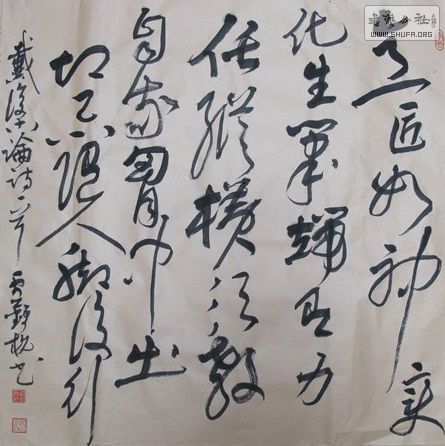 意匠如神變
化生筆端有力
任縱橫須教
自我胸中出
切忌隨人腳後行
戴復古論詩一首 書
書藝公社
WWW.SHUFA.ORG